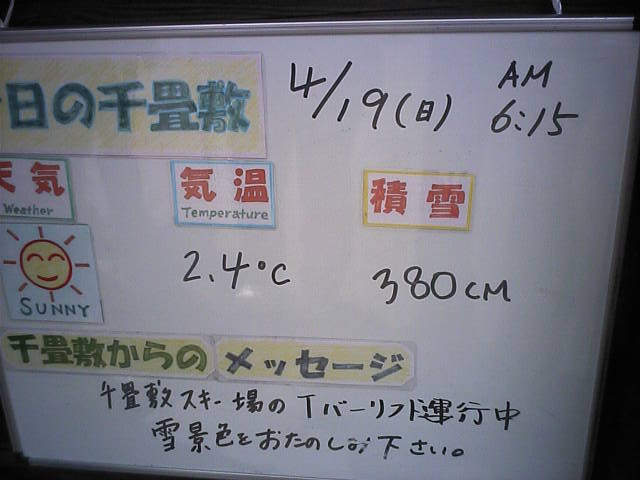 日の千畳敷 4/19(日) AM 6:15
天気 気温 積雪
Weather Temperature
SUNNY 2.4℃ 380cm
千畳敷からの メッセージ
千畳敷スキー場のTバーリフト運行中
雪景色をおたのしみ下さい。